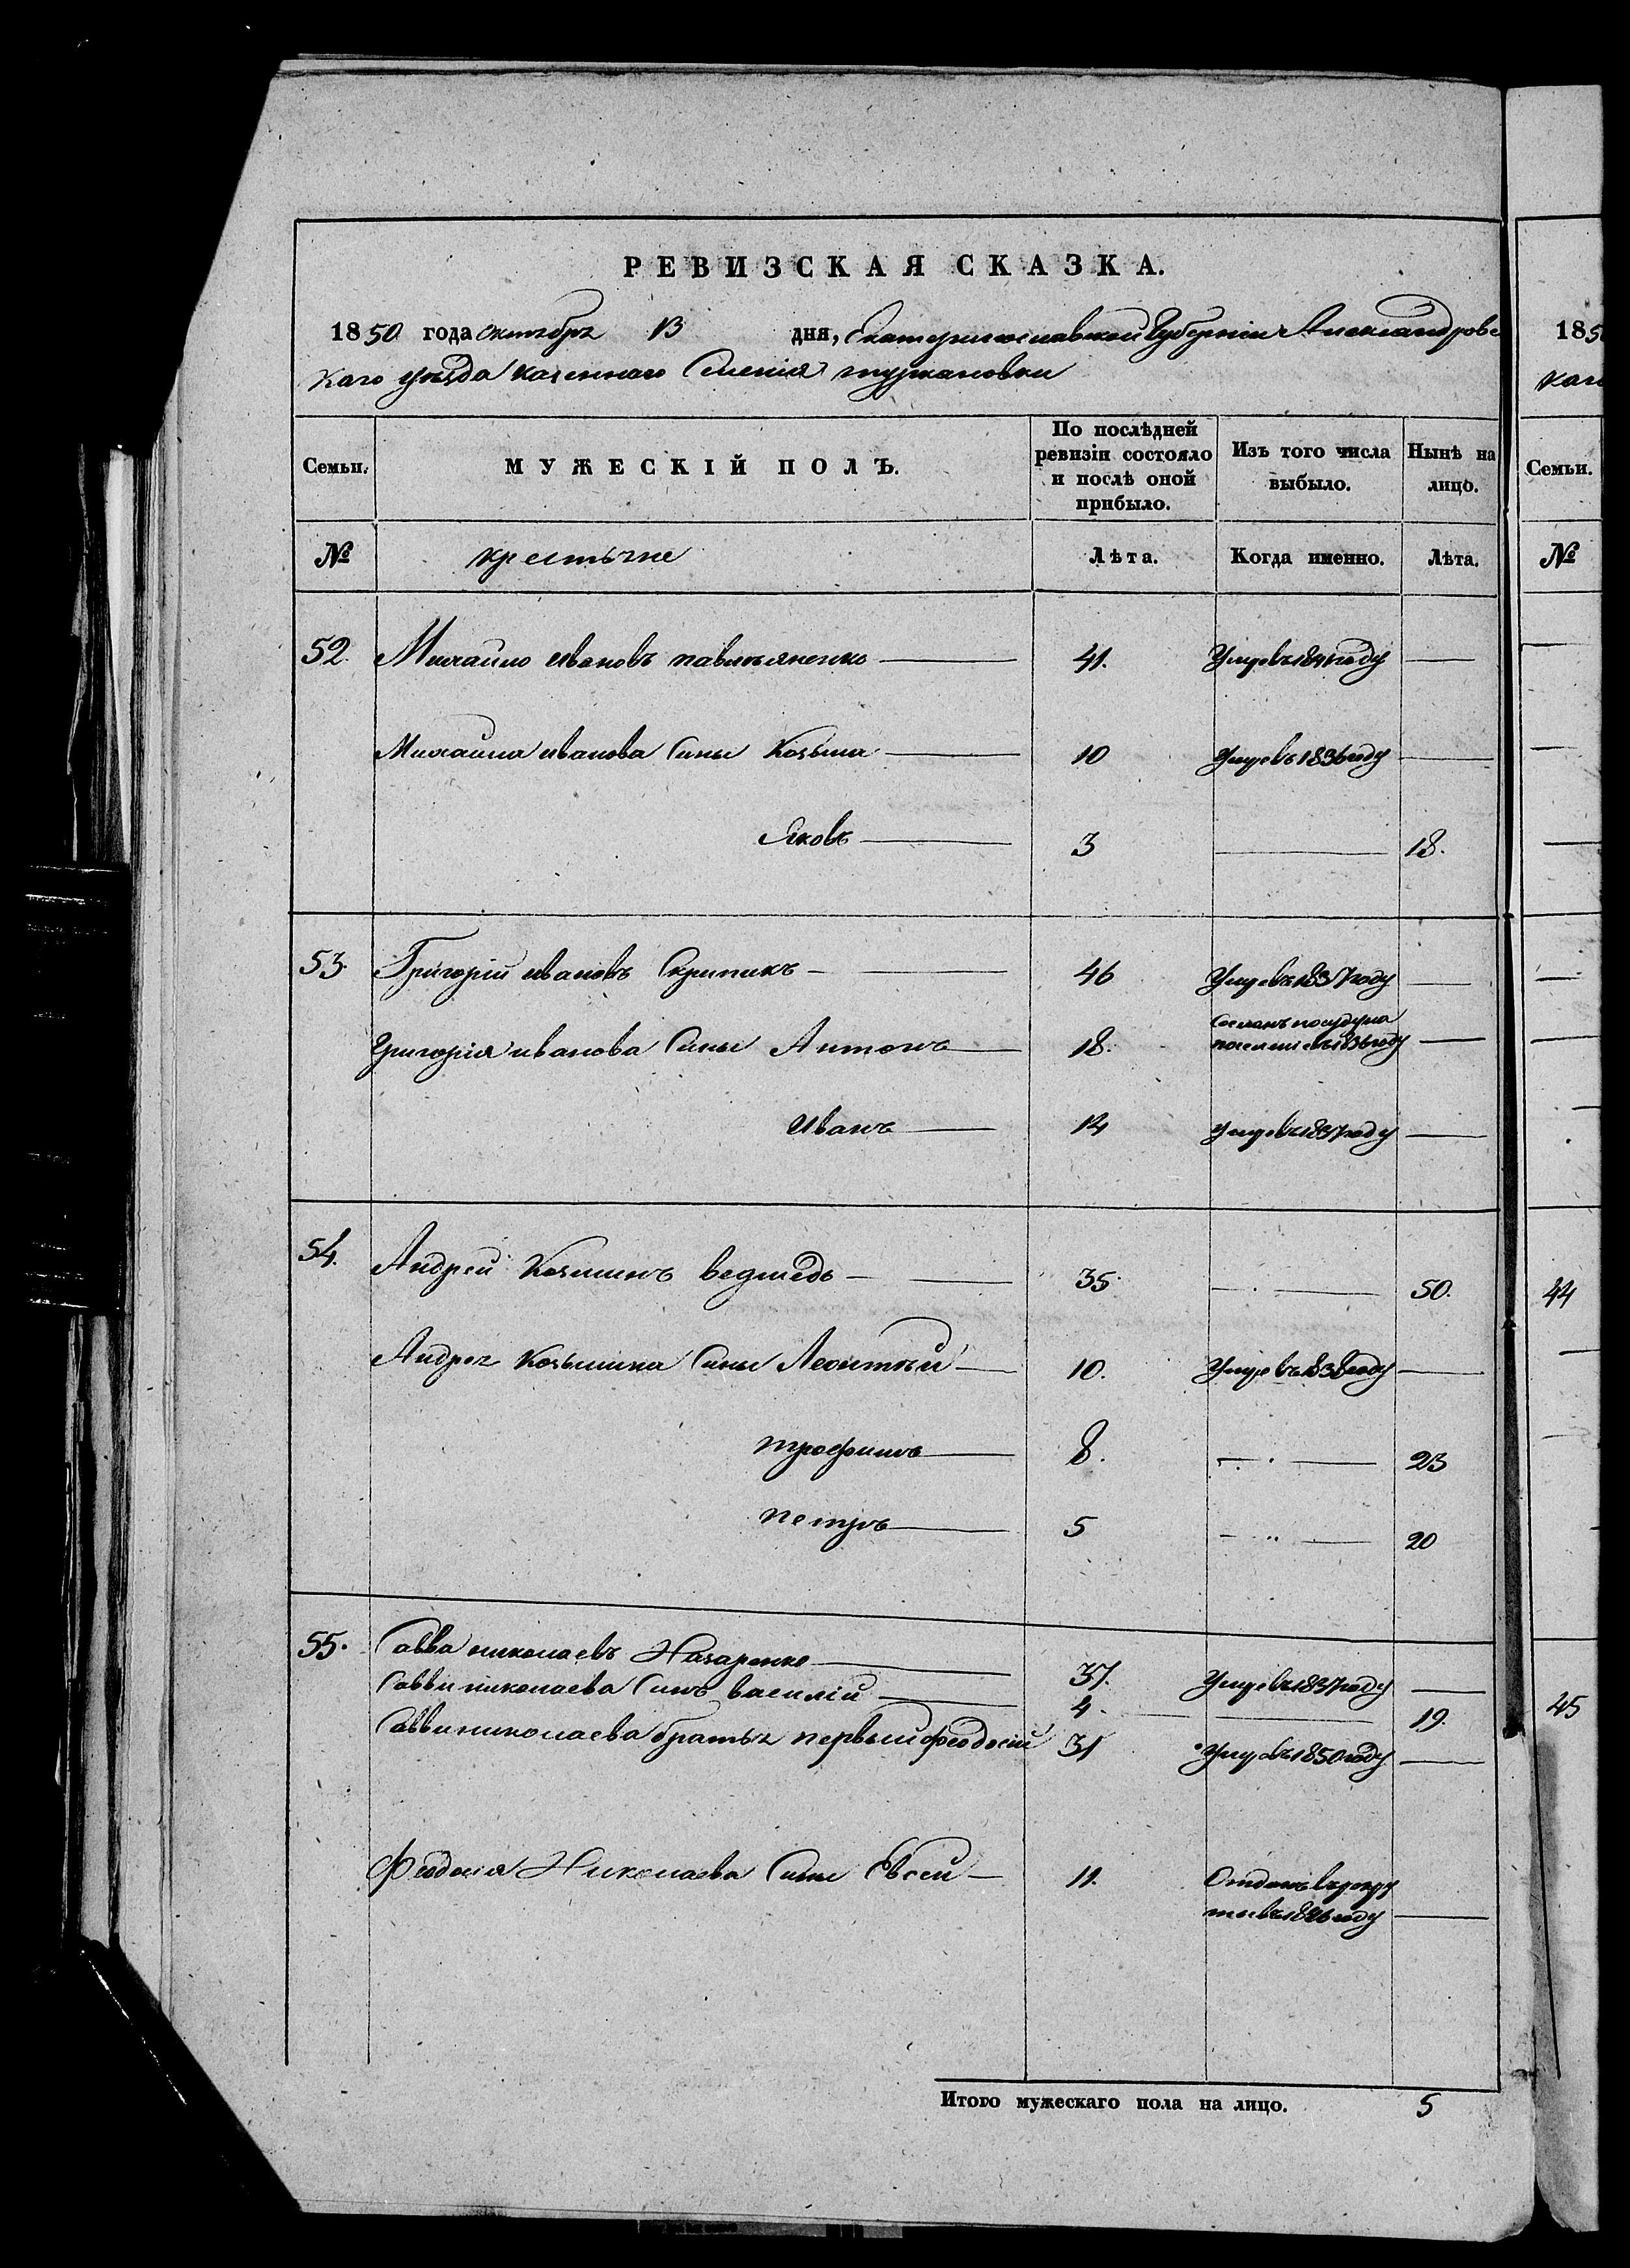 РЕВИЗСКАЯ СКАЗКА.
1850 года октября 13 дня, Екатеринославской Губерніи Александровс
каго уѣзда казеннаго Селенія туркановки
Семьи. МУЖЕСКІЙ ПОЛЪ. По послѣдней ревизіи состояло и послѣ оной прибыло. Изъ того числа выбыло. Нынѣ на лицо.
№ крестьяне Лѣта. Когда именно. Лѣта.
52. Михайло ивановъ 41. Умре въ 1841 году
Михайла иванова Сины Козьма 10 Умре въ 1836 году
Яковъ 3 18.
53. Григорій ивановъ Скрипикъ 46 Умре въ 1837 году
Григорія иванова Сины Антонъ 18. Сосланъ по суду на поселеніе въ 1836 году
иванъ 14 умре въ 1837 году
54. Андрей Козминъ ведмедь 35 50.
Андрея Козьмина Сины Леонтій 10. Умре въ 1838 году
трофимъ 8. 23
петръ 5 20
55. Савва николаевъ Назаренко 37. Умре въ 1837 году
Саввы николаева Синъ василій 4. 19.
Саввы николаева братья первый феодосій 31 Умре въ 1850 году
Феодосія Николаева Сины Евсей 11. Отданъ в рекру
ты въ 1846 году
Итого мужескаго пола на лицо. 5
185
каго
Семьи.
№
44
45